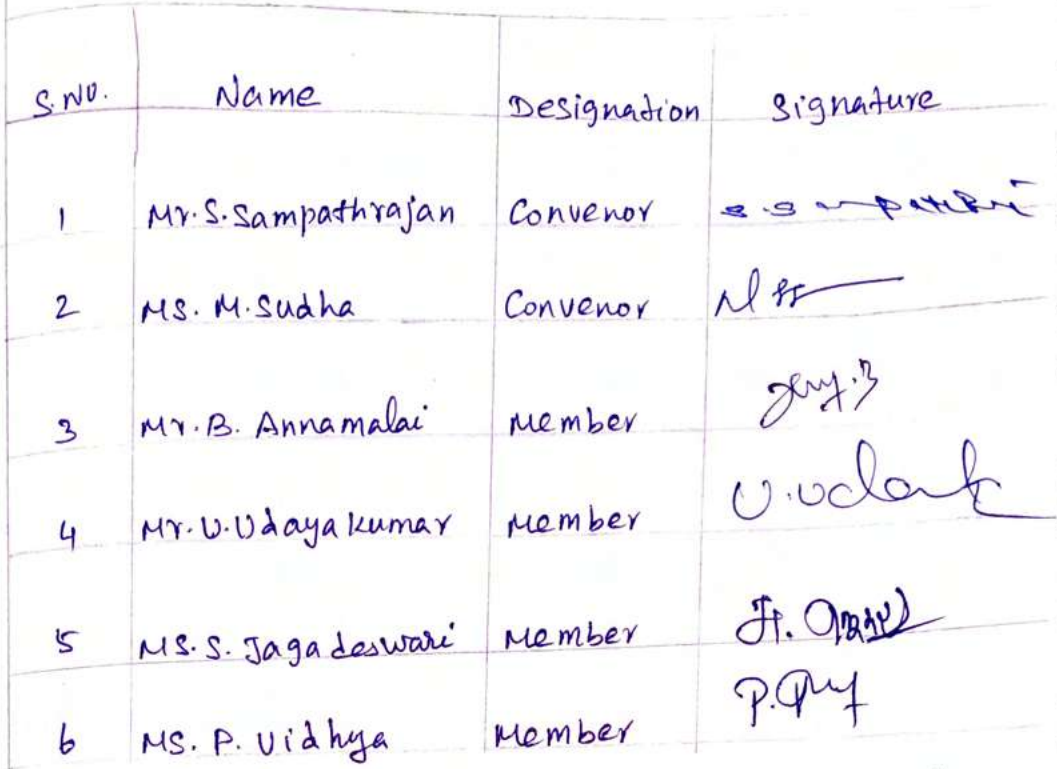 S.NO. Name Designation Signature
1 Mr. S. Sampathrajan Convenor
2 MS. M. Sudha Convenor
3 Mr. B. Annamalai Member
4 Mr. U. Udaya kumar Member
5 MS. S. Jagadeswari Member
6 MS. P. Vidhya Member